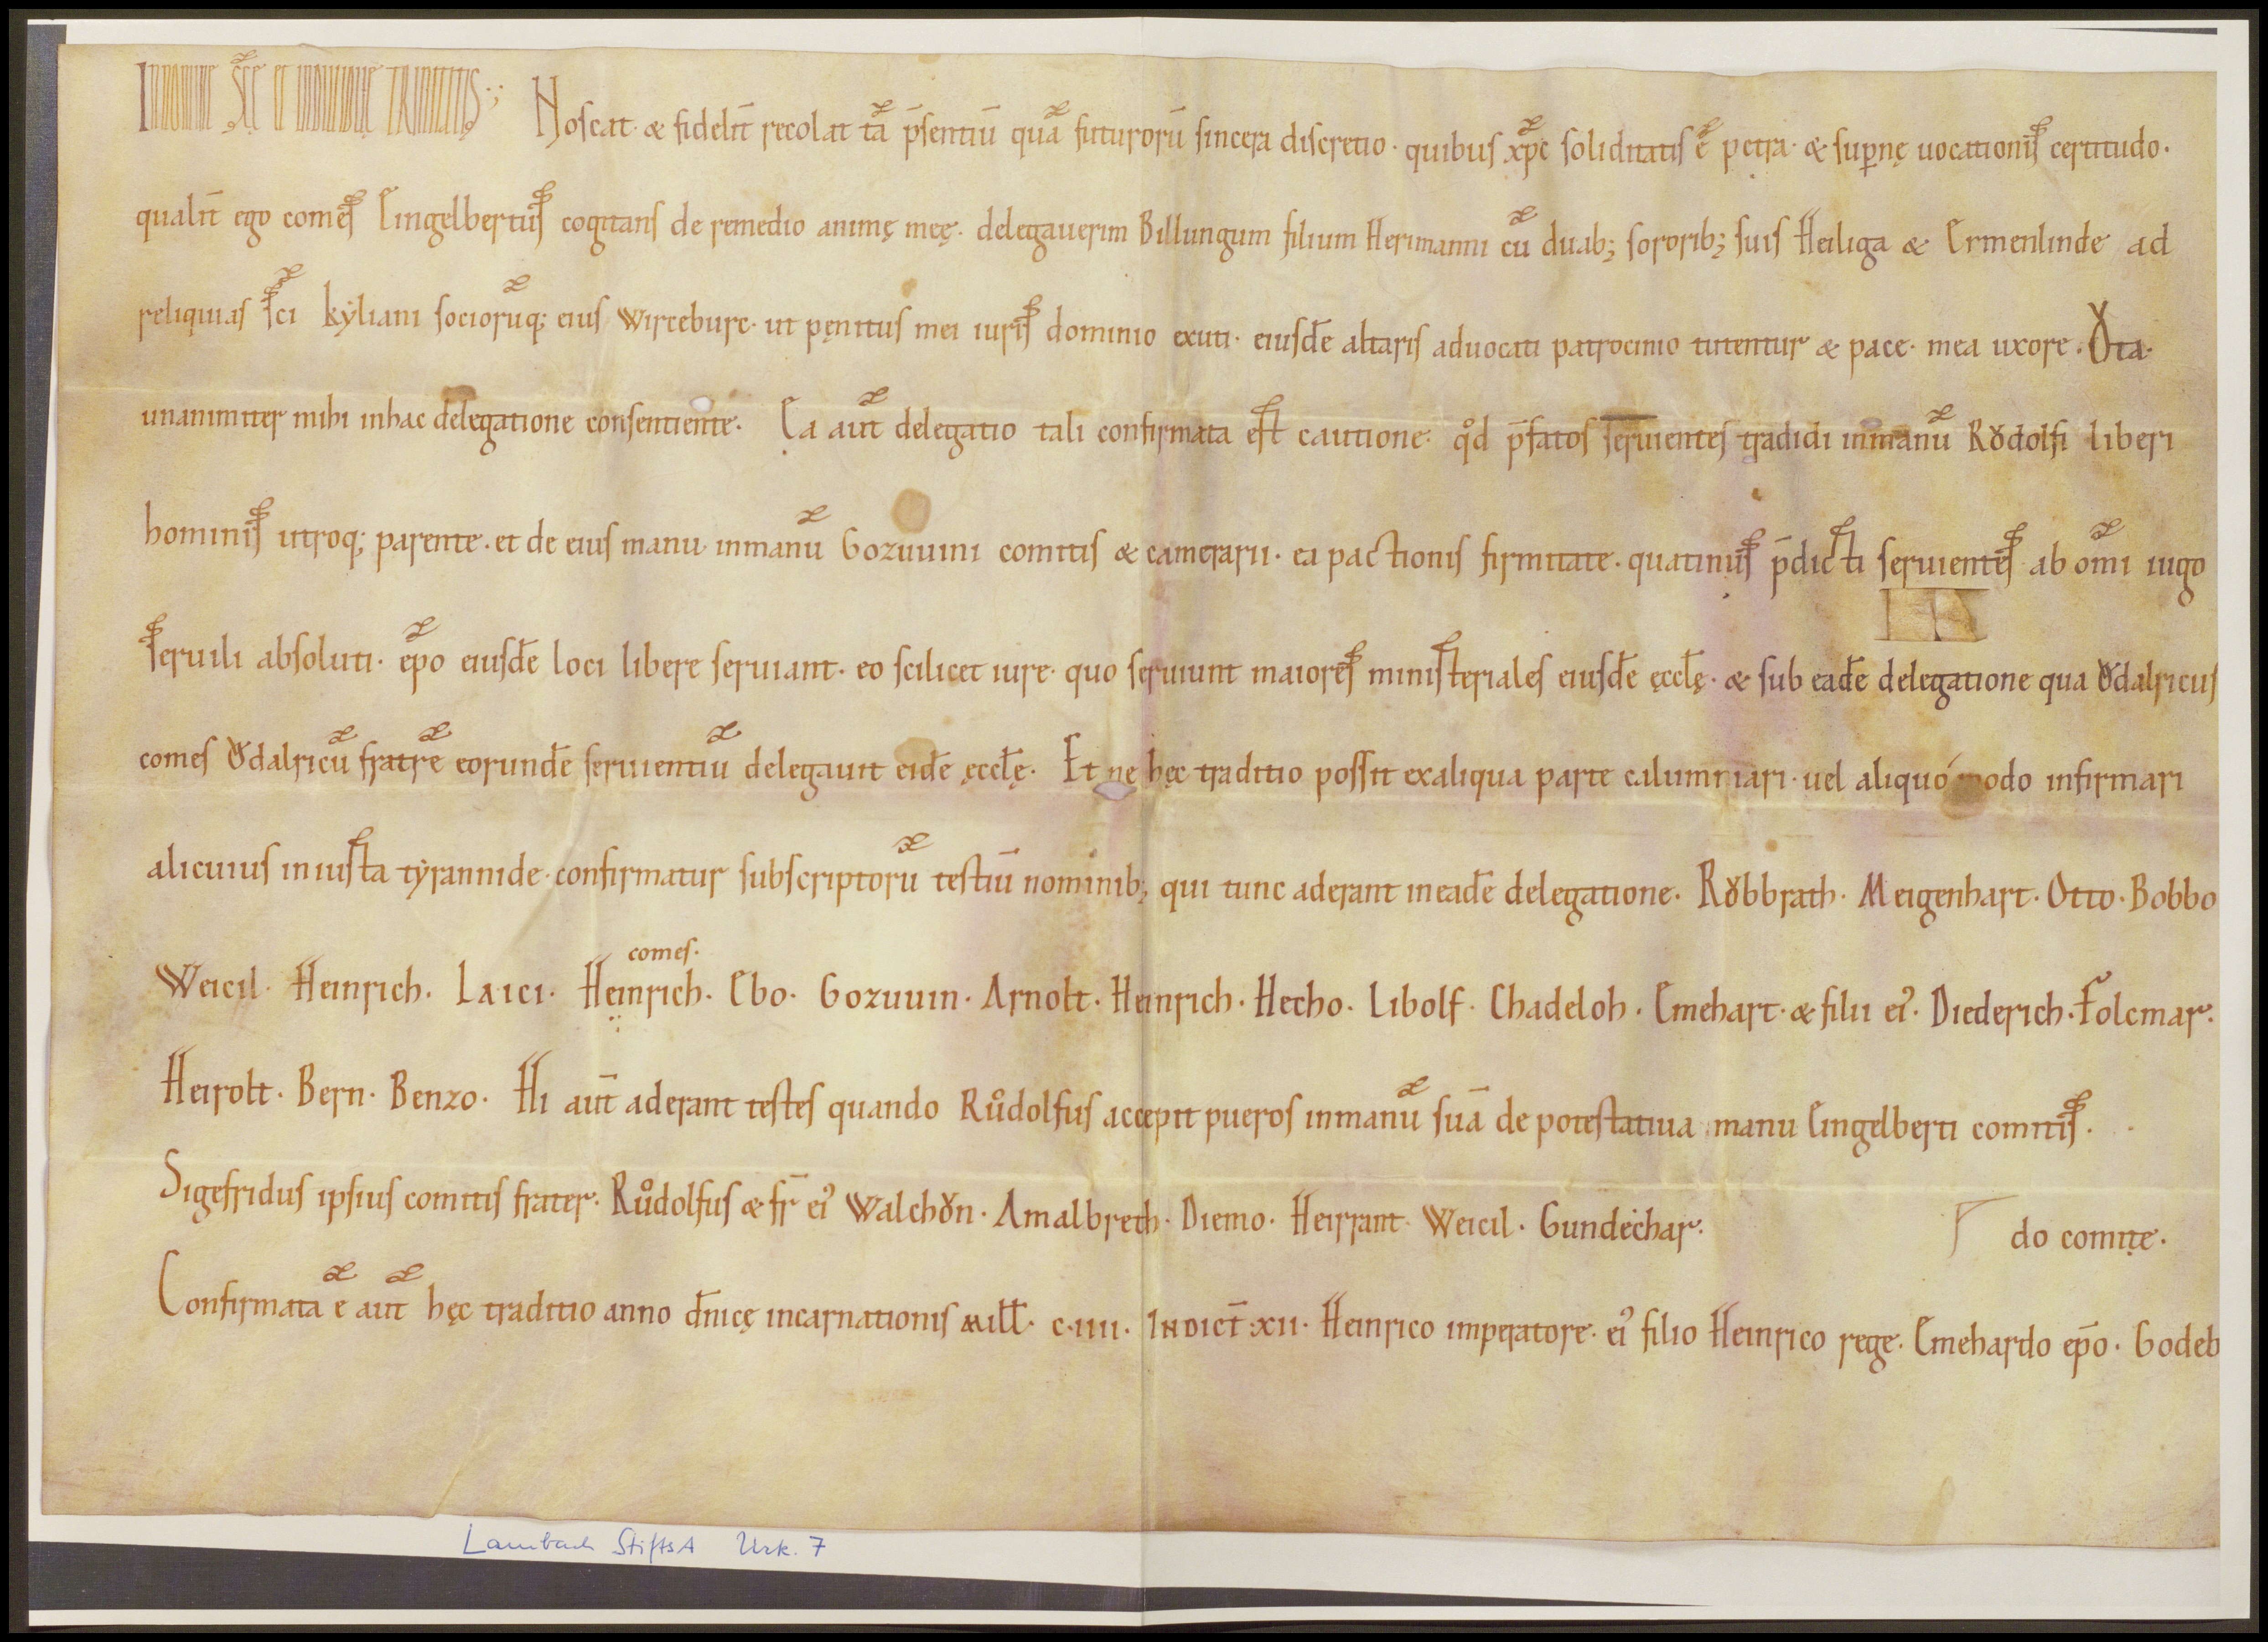 IN NOMINE SC̄Ę ET INDIVIDUĘ TRINITATIS·;· Noscat· & fidelit̄ recolat tā p̄sentiū quā futurorū sincera discretio· quibus xp̄c soliditatis ē petra· & sup̱nę uocationis certitudo·
qualit̄ ego comes Eingelbertus cogitans de remedio animę meę· delegauerim Billungum filium Herimanni cū duab; sororib; suis Heiliga & Ermenlinde ad
reliquias sc̄i kẏliani sociorūq; eius Wirceburc· ut pęnitus mei iuris dominio exuti· eiusdē altaris aduocati patrocinio tutentur & pace· mea uxore· Ǒta·
unanimiter mihi inhac delegatione consentiente· Ea aut̄ delegatio tali confirmata est cautione· qd̊ p̄fatos seruientes tradidi inmanū Rǒdolfi liberi
hominis utroq; parente· et de eius manu inmanū Gozuuini comitis & camerarii· ea pactionis firmitate· quatinus p̄dicti seruientes ab om̄i iugo
seruili absoluti· ep̄o eiusdē loci libere seruiant· eo scilicet iure· quo seruiunt maiores ministeriales eiusdē ęccłę· & sub eadē delegatione qua ǒdalricus
comes ǒdalricū fratrē eorundē seruientiū delegauit eidē ęccłę· Et ne hęc traditio possit exaliqua parte calumniari· uel aliquó modo infirmari
alicuius iniusta tẏrannide· confirmatur subscriptorū testiū nominib; qui tunc aderant ineadē delegatione· Rǒbbrath· Meigenhart· Otto· Bobbo
Weicil· Heinrich· Laici· Heinrich· Ebo· Gozuuin· Arnolt· Heinrich· Hecho· Libolf· Chadeloh· Emehart· & filii ei᾽· Diederich· Folcmar·
comes·
Heirolt· Bern· Benzo· Hi aut̄ aderant testes quando Růdolfus accepit pueros inmanū suā de potestatiua manu Eingelberti comitis·
Sigefridus ipsius comitis frater· Růdolfus & fr̄ ei᾽ Walchǒn· Amalbreth· Diemo· Heirrant· Weicil· Gundėchar· do comite·
Confirmata ē aut̄ hęc traditio anno dn̄icę incarnationis mill̄· c·iiii· Indict̄·xii· Heinrico imperatore· ei᾽ filio Heinrico rege· Emehardo ep̄o· Godeb
Lambach StiftsA Urk. 7